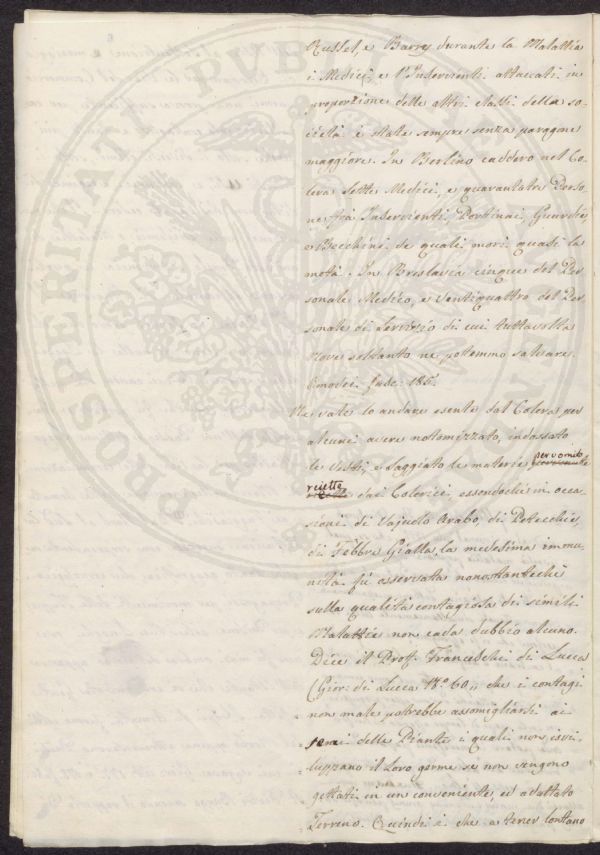 Russel, e Barry durante la Malattia
i Medici, e l'Inservienti attaccati in
proporzione delle altri classi della so-
cietà è stato sempre senza paragone
maggiore. In Berlino caddero nel Co-
lera sette Medici, e quarantatre Perso-
ne fra Inservienti, Portinai, Guardie,
e Becchini de quali morì quasi la
metà. In Breslavia cinque del Per-
sonale Medico, e ventiquattro del Per-
sonale di Servizio di cui tuttavolta
Nove soltanto ne potemmo salvare.
Omodei fasc: 185.
Ne vale lo andare esente dal Colera per
alcuni avere notomizzato, indossato
le vesti, e saggiato le materie per vomito
reiette dai Colerici, essendochè in occa-
sioni di Vajuolo Arabo, di Petecchie,
di Febbre Gialla, la medesima immu-
nità fù osservata nonostantechè
sulla qualità contagiosa di simili
Malattie non cada dubbio alcuno.
Dice il Proff. Franceschi di Lucca
(Gior: di Lucca N.o 60,, che i contagi
non male potrebbe assomigliarsi ai
semi delle Piante, i quali non isvi-
luppano il loro germe se non vengono
gettati in un conveniente, ed adattato
Terreno. Quindi è che a tener lontano
PROSPERITATI PVBLICAE